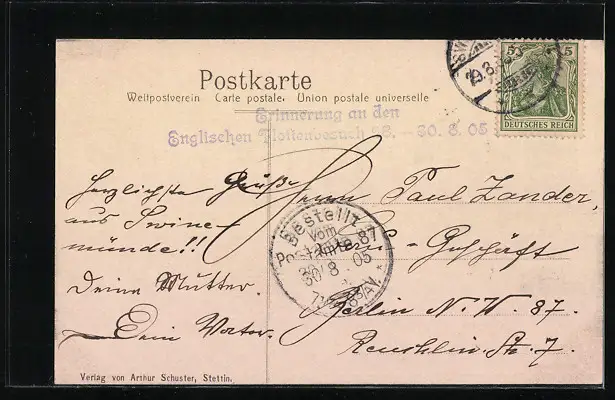 Postkarte
Weltpostverein Carte postale. Union postale universelle
5 5
DEUTSCHES REICH
Erinnerung an den
Englischen Flottenbesuch 28. — 30. 8. 05
Herzlichste Grüße
aus Swine-
münde!!
Deine Mutter.
Dein Vater.
Herrn Paul Zander,
Geschäft
Berlin N. W. 87.
Reuchlin Str. 7.
Bestellt
vom
Postamte 87
30 8 05
Verlag von Arthur Schuster, Stettin.